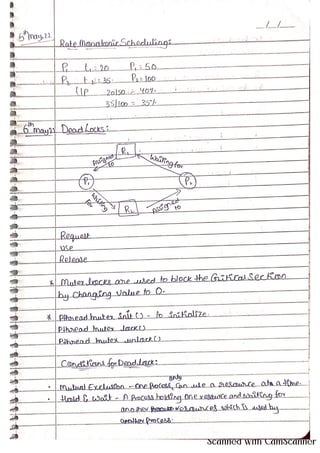 __/__/__
5th May,22
Rate Monotonic Scheduling:
P1 t1 = 20 P1 = 50
P2 t2 = 35 P2 = 100
20/50 = 40%
35/100 = 35%
6th May,22 DeadLocks:
R1
Assigned to
Waiting for
P1
P2
Waiting for
R2
Assigned to
Request
Use
Release
* Mutex Locks are used to block the Critical Section
by Changing value to 0.
* Pthread mutex init() - to initialize.
Pthread mutex lock()
Pthread mutex unlock()
Conditions for DeadLock:
• Mutual Exclusion - only one Process, Can use a resource at a time.
• Hold & Wait - A Process holding one resource and waiting for
another resources which is used by
another process.
Scanned with CamScanner